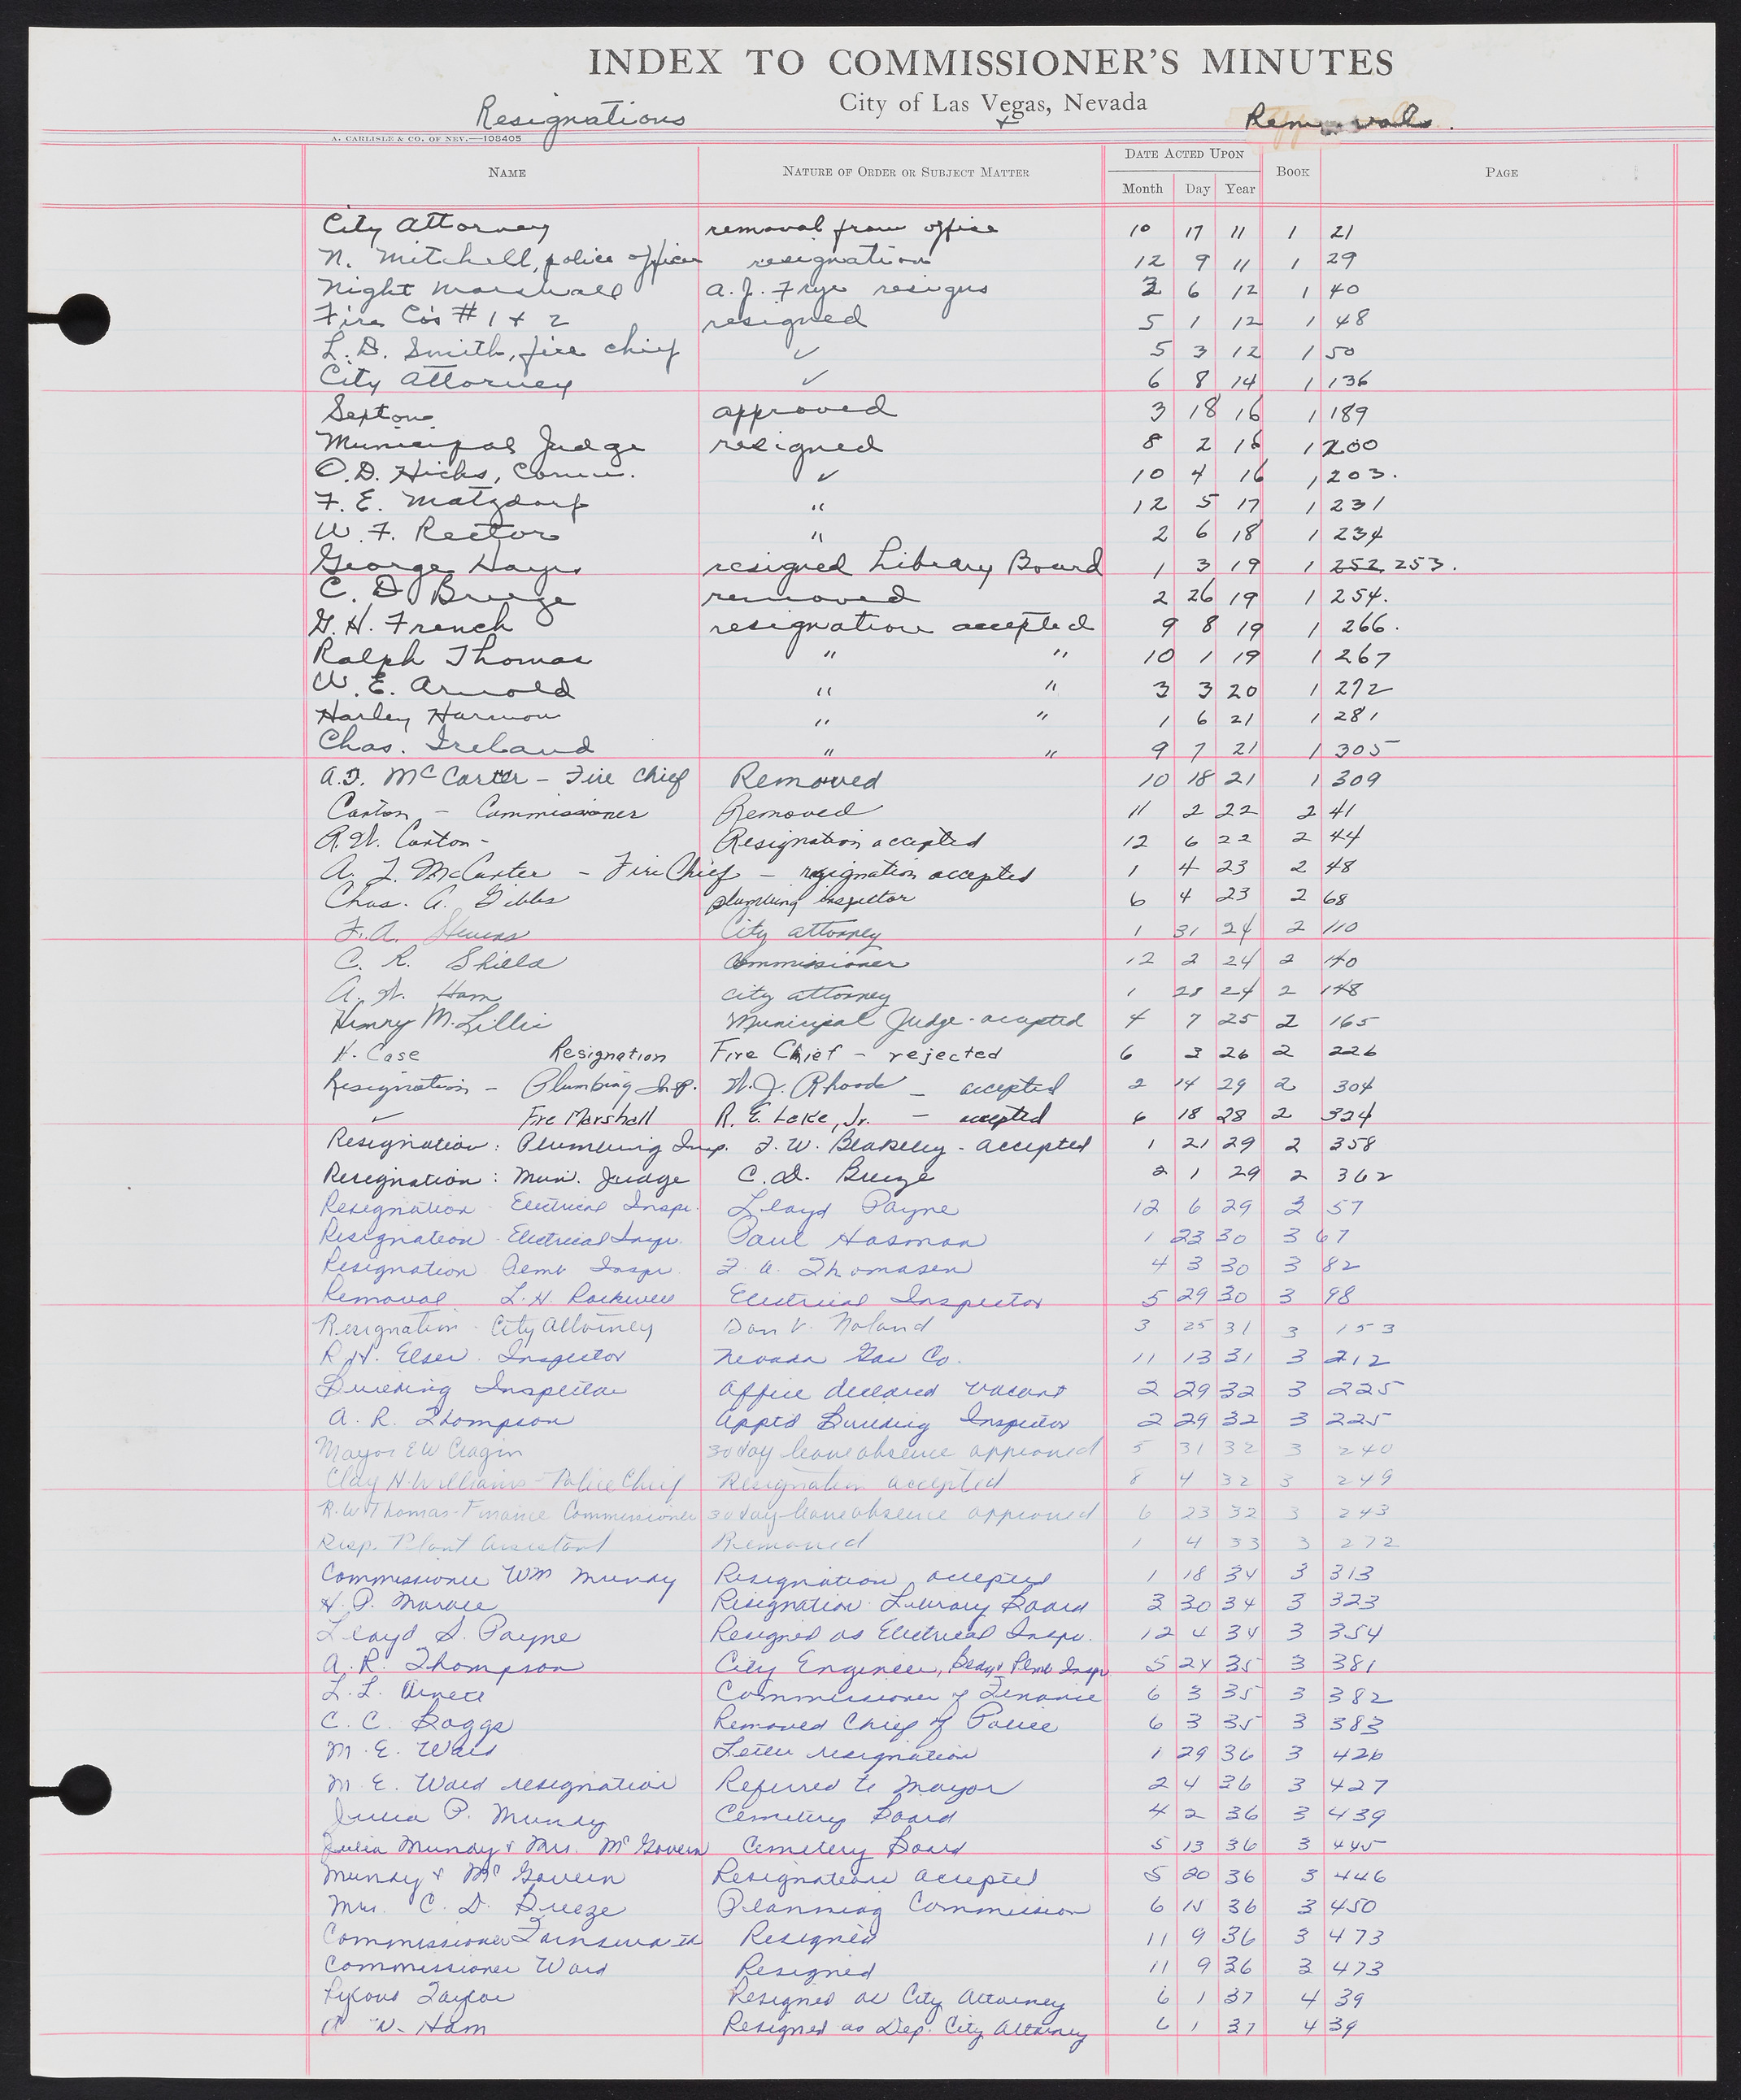 INDEX TO COMMISSIONER'S MINUTES
City of Las Vegas, Nevada
Resignations + Removals.
A. CARLISLE & CO. OF NEV.—108405
NAME NATURE OF ORDER OR SUBJECT MATTER DATE ACTED UPON BOOK PAGE
Month Day Year
City Attorney removal from office 10 17 11 1 21
N. Mitchell, police officer resignation 12 9 11 1 29
Night Marshall A.J. Frye resigns 3 6 12 1 40
Fire Co's #1 + 2 resigned 5 1 12 1 48
L.D. Smith, fire chief ✓ 5 3 12 1 50
City Attorney ✓ 6 8 14 1 136
Sexton approved 3 18 16 1 189
Municipal Judge resigned 8 2 16 1 200
O.D. Hicks, Comm. ✓ 10 4 16 1 203.
F. E. Matzdorf " 12 5 17 1 231
W. F. Rector " 2 6 18 1 234
George Hayes resigned Library Board 1 3 19 1 252, 253.
C. D. Breeze removed 2 26 19 1 254.
G. H. French resignation accepted 9 8 19 1 266.
Ralph Thomas " " 10 1 19 1 267
W. E. Arnold " " 3 3 20 1 272
Harley Harmon " " 1 6 21 1 281
Chas. Ireland " " 9 7 21 1 305
A.J. McCarter - Fire Chief Removed 10 18 21 1 309
Canton - Commissioner Removed 11 2 22 2 41
A.W. Canton - Resignation accepted 12 6 22 2 44
A. J. McCarter - Fire Chief - resignation accepted 1 4 23 2 48
Chas. A. Gibbs plumbing inspector 6 4 23 2 68
F.A. Stevens City attorney 1 31 24 2 110
C. R. Shield Commissioner 12 2 24 2 140
A. W. Ham city attorney 1 28 24 2 148
Henry M. Lillis Municipal Judge - accepted 4 7 25 2 165
H. Case Resignation Fire Chief - rejected 6 3 26 2 226
Resignation - Plumbing Insp. W.J. Rhoads - accepted 2 14 29 2 304
✓ Fire Marshall R. E. Lake, Jr. - accepted 6 18 28 2 324
Resignation: Plumbing Insp. F. W. Blakeley - accepted 1 21 29 2 358
Resignation: Mun. Judge C. D. Breeze 2 1 29 2 362
Resignation - Electrical Inspr. Lloyd Payne 12 6 29 3 57
Resignation - Electrical Inspr. Paul Hasman 1 23 30 3 67
Resignation Plmb Inspr. F. A. Thomasen 4 3 30 3 82
Removal L.H. Rockwell Electrical Inspector 5 29 30 3 98
Resignation - City Attorney Don V. Noland 3 25 31 3 153
R.H. Elser. Inspector Nevada Gas Co. 11 13 31 3 212
Building Inspector Office declared vacant 2 29 32 3 225
A. R. Thompson Apptd Building Inspector 2 29 32 3 225
Mayor E W Cragin 30 day leave absence approved 5 31 32 3 240
Clay H. Williams - Police Chief Resignation accepted 8 4 32 3 249
R. W. Thomas - Finance Commissioner 30 day leave absence approved 6 23 32 3 243
Disp. Plant Assistant Removed 1 4 33 3 272
Commissioner Wm Mundy Resignation accepted 1 18 34 3 313
H. P. Resignation Library Board 3 30 34 3 323
Lloyd S. Payne Resigned as Electrical Inspr. 12 4 34 3 354
A. R. Thompson City Engineer, Bldg & Plmb Inspr 5 24 35 3 381
L. L. Arnett Commissioner of Finance 6 3 35 3 382
C. C. Boggs Removed Chief of Police 6 3 35 3 383
M. E. Ward Letter resignation 1 29 36 3 426
M. E. Ward resignation Referred to Mayor 2 4 36 3 427
Julia P. Mundy Cemetery Board 4 2 36 3 439
Julia Mundy & Mrs. McGovern Cemetery Board 5 13 36 3 445
Mundy & McGovern Resignations accepted 5 20 36 3 446
Mrs. C. D. Breeze Planning Commission 6 15 36 3 450
Commissioner Farnsworth Resigned 11 9 36 3 473
Commissioner Ward Resigned 11 9 36 3 473
Taylor Resigned as City Attorney 6 1 37 4 39
A W. Ham Resigned as Dep. City Attorney 6 1 37 4 39